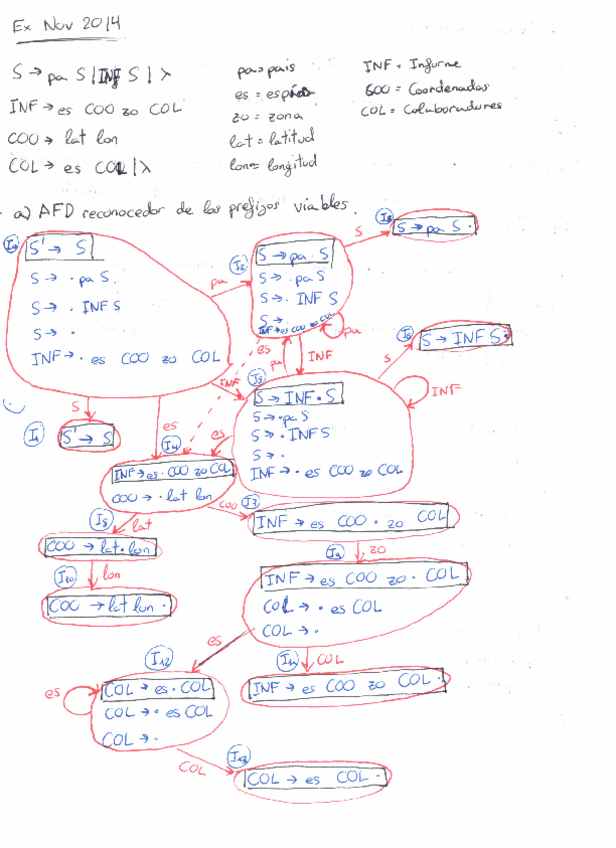 Ex Nov 2014
S → pa S | INF S | λ
INF → es COO zo COL
COO → lat lon
COL → es COL | λ
pa = pais
es =
zo = zona
lat = latitud
lon = longitud
INF = Informe
COO = Coordenadas
COL = Colaboradores
a) AFD reconocedor de los prefijos viables.
I0
S' → S
S → · pa S
S → · INF S
S → ·
INF → · es COO zo COL
pa
I2
S → pa · S
S → · pa S
S → · INF S
S → ·
INF → · es COO zo COL
S
S → pa S ·
pa
es
pa
INF
INF
S
I6
S → INF S ·
INF
I3
S → INF · S
S → · pa S
S → · INF S
S → ·
INF → · es COO zo COL
S
I1
S' → S
es
es
I4
INF → es · COO zo COL
COO → · lat lon
COO
INF → es COO · zo COL
lat
I8
COO → lat · lon
lon
I10
COO → lat lon ·
zo
I9
INF → es COO zo · COL
COL → · es COL
COL → ·
es
COL
I11
INF → es COO zo COL ·
I12
es
COL → es · COL
COL → · es COL
COL → ·
COL
I13
COL → es COL ·